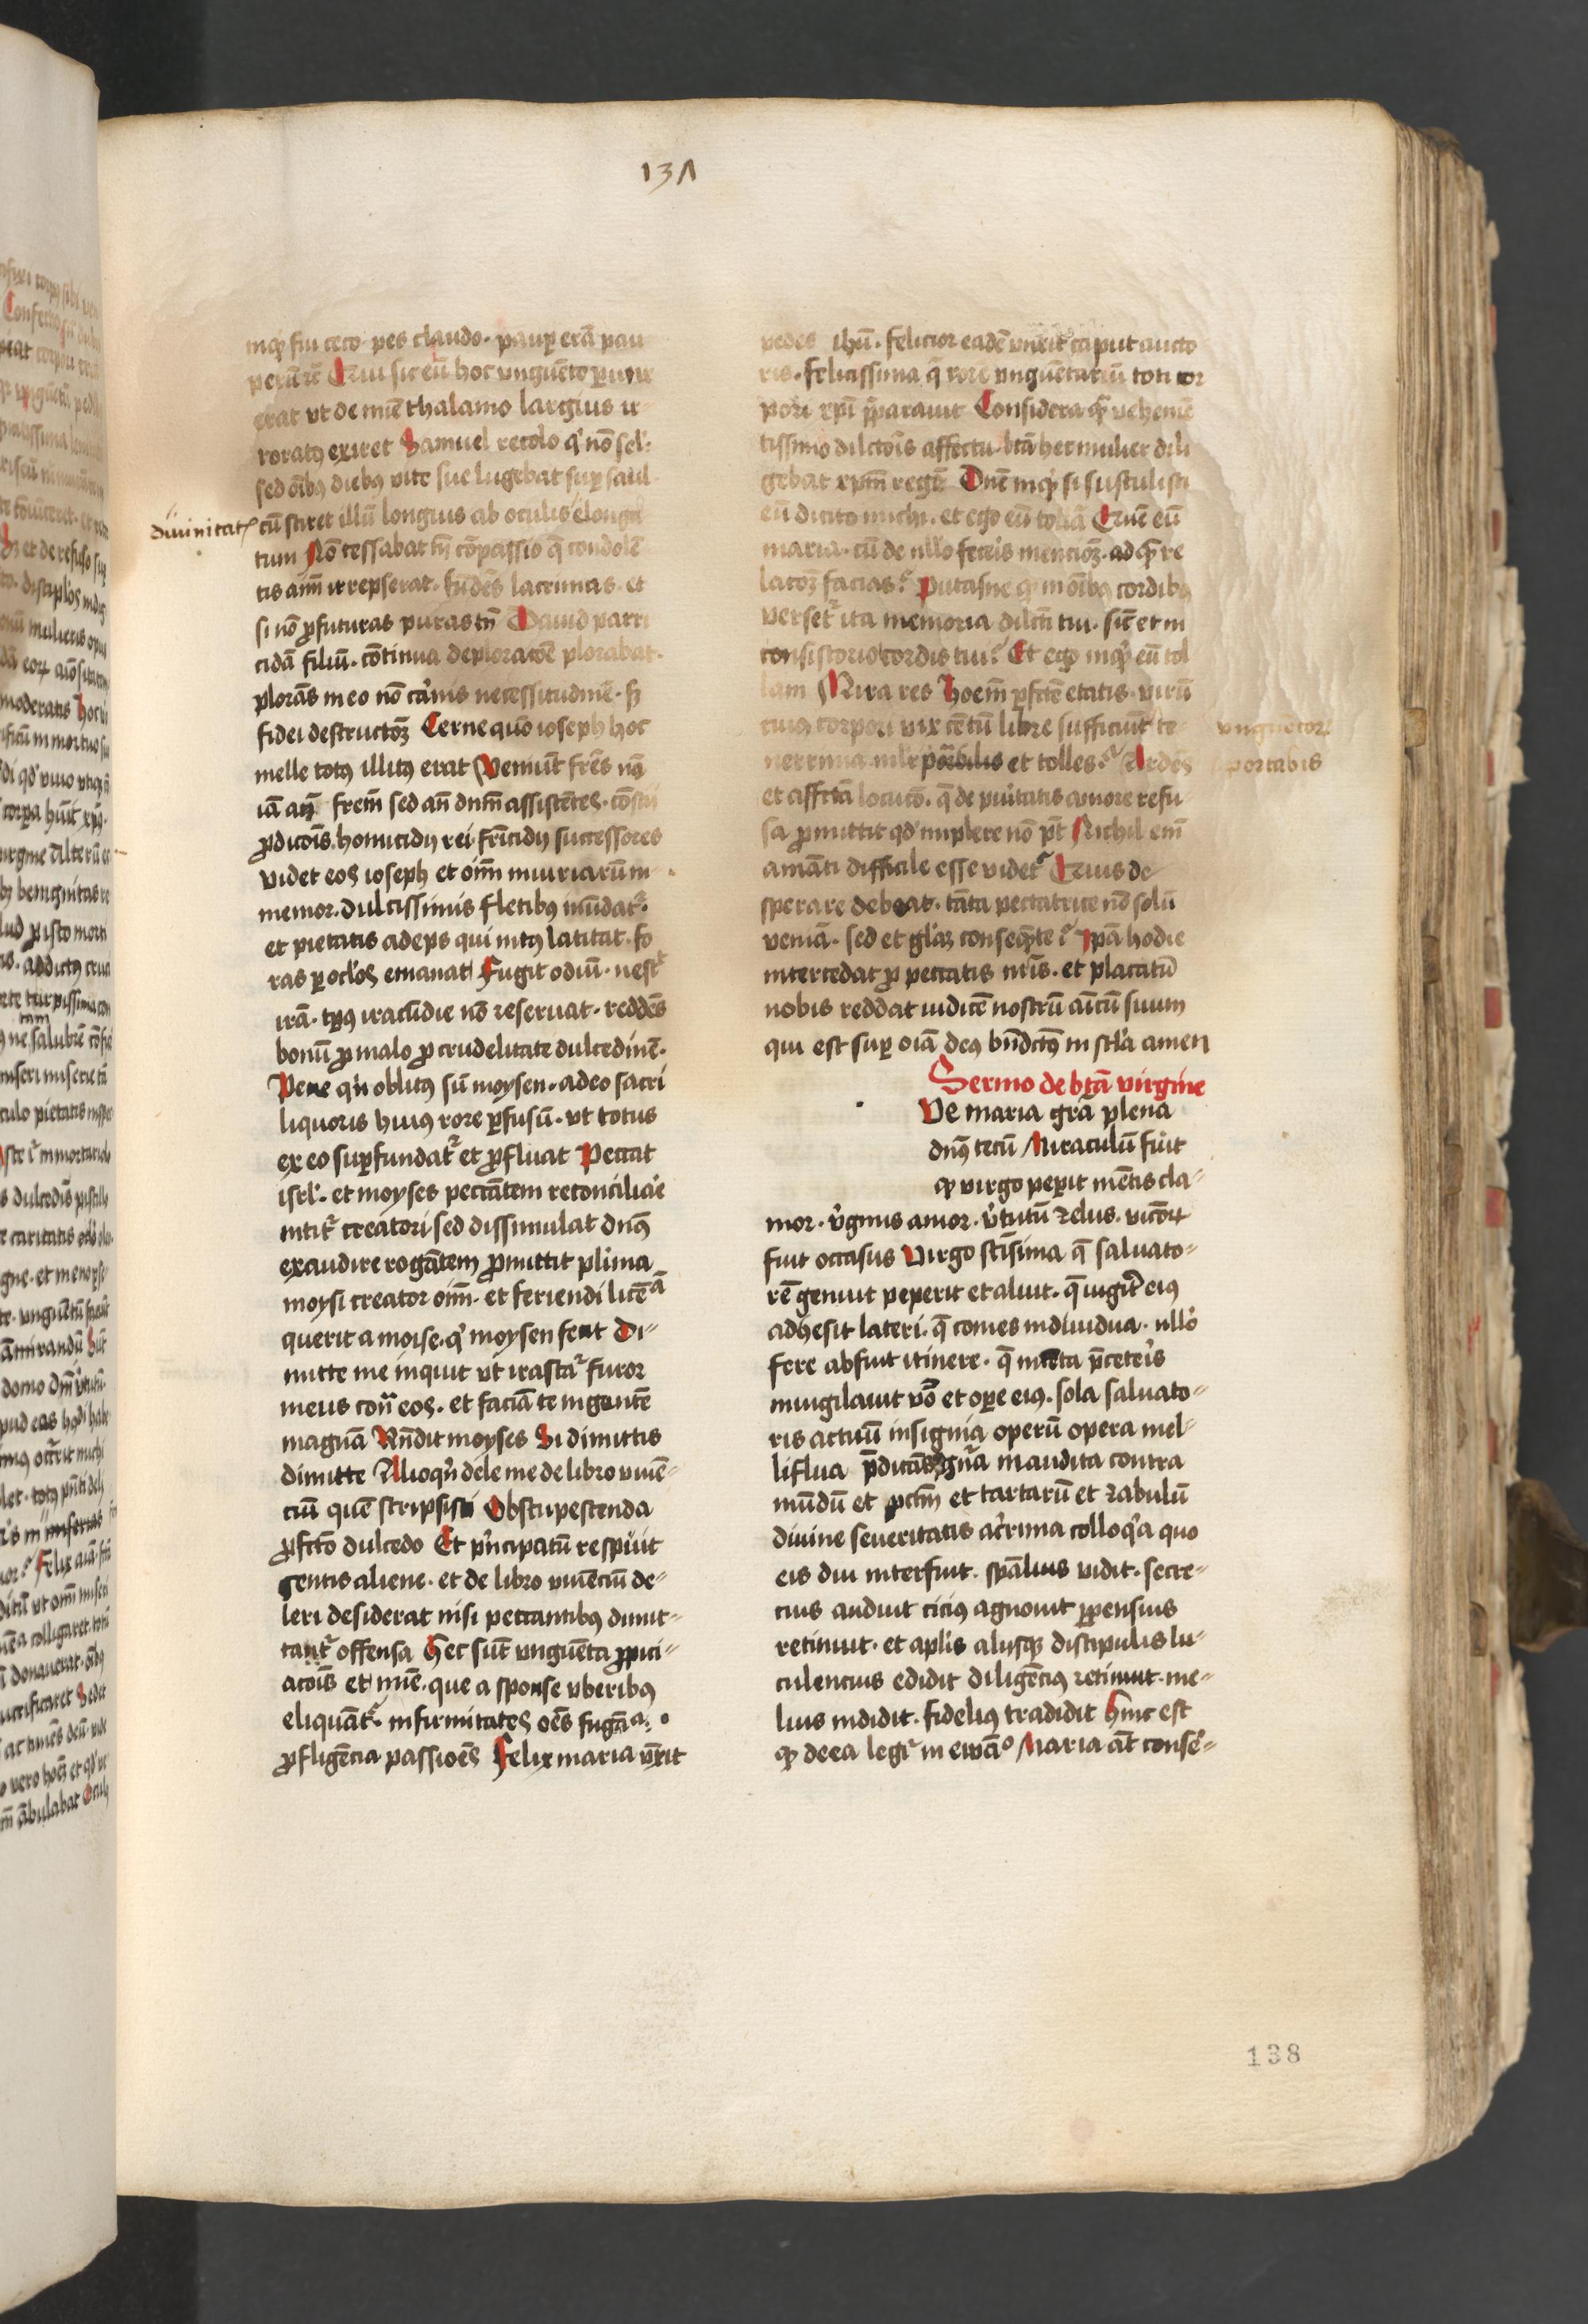 137
inq̄ fui ceco· pes claudo· paupeꝝ erā pau
perū rē Cui sic eū hoc vnguēto
erat vt de mīe thalamo largius ir
roratꝯ exiret Samuel recolo qͥ nō sel'·
sed oībꝯ diebꝯ vite sue lugebat suꝑ saul
diuinitatꝭ
cū sciret illū longius ab oculis elonga
tum Nō cessabat tn̄ cōpassio q̄ condolē
tis aīm irrepserat· fūdēs lacrimas· et
si nō ꝓfuturas puras tn̄ Dauid parri
cidā filiū· cōtinua deploracōe plorabat·
plorās in eo nō cͣnis necessitudinē· sꝫ
fidei destructoꝝ Cerne quō ioseph hoc
melle totꝯ illitꝯ erat Veniūt frēs nō
iā an̄ frem̄ sed an̄ dnm̄ assistētes· cōscii
ꝓdicōis· homicidij rei· fricidij successores
videt eos ioseph et oīm iniuriarū in
memor· dulcissimis fletibꝯ inūdatᷣ·
et pietatis adeps qui intꝯ latitat· fo
ras ꝑ oclos emanat Fugit odiū· nescͭ
irā· tꝑꝯ iracūdie nō reseruat· reddēs
bonū ꝓ malo ꝓ crudelitate dulcedinē·
Pene qͥn oblitꝯ sū moysen· adeo sacri
liquoris huiꝯ rore ꝑfusū· vt totus
ex eo suꝑfundatᷣ et ꝓfluat Peccat
isrl'· et moyses peccātem reconciliaͤe
nititᷣ creatori sed dissimulat dn̄s
exaudire rogātem ꝓmittit plͥma
moysi creator oīm· et feriendi licēͣ
querit a moise· qͥ moysen fecit Di-
mitte me inquit vt irascatᷣ furor
meus con̄ eos· et faciā te in gentē
magnā Rn̄dit moyses Si dimittis
dimitte Alioqͥn dele me de libro viuē-
ciū quē scripsisti Obstupescenda
ꝓfcō dulcedo Et pͥncipatū respuit
gentis aliene· et de libro viuenciū de-
leri desiderat nisi peccantibꝯ dimit-
tantᷣ offensa Hec sūt vnguēta ꝓpici-
acōis et mīe· que a sponse vberibꝯ
eliquātᷣ· infirmitates oēs fugācia·
ꝓfligēcia passiōes Felix maria vnxit
pedes ihū· felicior eadē vnxit caput aucto
ris· felicissima q̄ rore vnguētariū toti cor
pori xp̄i p̄parauit Considera qͣ vehemē
tissimo dilctōis affectu btā hec mulier dili
gebat xpm̄ regē Dn̄e inqͥ si sustulisti
eū dicito michi· et ego eū tollā Quē eū
maria· cū de nllo feceis mencioꝫ· ad qͣ re
lacoꝫ facias? Putasne qͥ in oībꝯ cordibꝯ
versetᷣ ita memoria dilcti tui· sic et in
consistorio cordis tui? Et ego inqͥ eū tol
lam Mira res hoiem̄ ꝑfcte etatis· virū
cuiꝯ corpori vix centū libre sufficiūt te
vnguētoꝝ
nerrima mlier portabilis et tolles? Ardēs
portabis
et affcta locucō· q̄ de puͥtatis amore refu
sa ꝓmittit qd' implere nō pt̄ Nichil em̄
amāti difficile esse videtᷣ Quis de
sperare debeat· tāta peccatrice nō solū
veniā· sed et glͣaꝫ conseqͣnte? Ipā hodie
intercedat ꝓ peccatis nr̄is· et placatū
nobis reddat iudicē nostrū aīcū suum
qui est suꝑ oīa deꝯ bn̄dictꝯ in scla amen
Sermo de btā virgine
Ve maria grā plena
dn̄s tecū Miraculū fuit
qͥ virgo peperit mētis cla-
mor· vͥginis amor· vͥtutū zelus· vicōrū
fuit occasus Virgo scissima q̄ saluato-
rē genuit peperit et aluit· q̄ iugitᷣ eiꝯ
adhesit lateri· q̄ comes indiuidua· nllo
fere abfuit itinere· q̄ p̄ceteis
inuigilauit vo et oꝑe eiꝯ· sola saluato-
ris actuū insignia operū opera mel-
liflua p̄dicās gn̄a inaudita contra
mūdū et pctm̄ et tartarū et zabulū
diuine seueritatis acrima colloqͥa quo
eis diu interfuit· spālius vidit· secre-
cius audiuit cicius agnouit ꝓpensius
retinuit· et aplis alijsqꝫ discipulis lu-
culencius edidit diligēciꝯ retinuit· me-
lius indidit· fideliꝯ tradidit Hinc est
qͥ de ea legit᷑ in ewāͦ Maria āt conse-
138